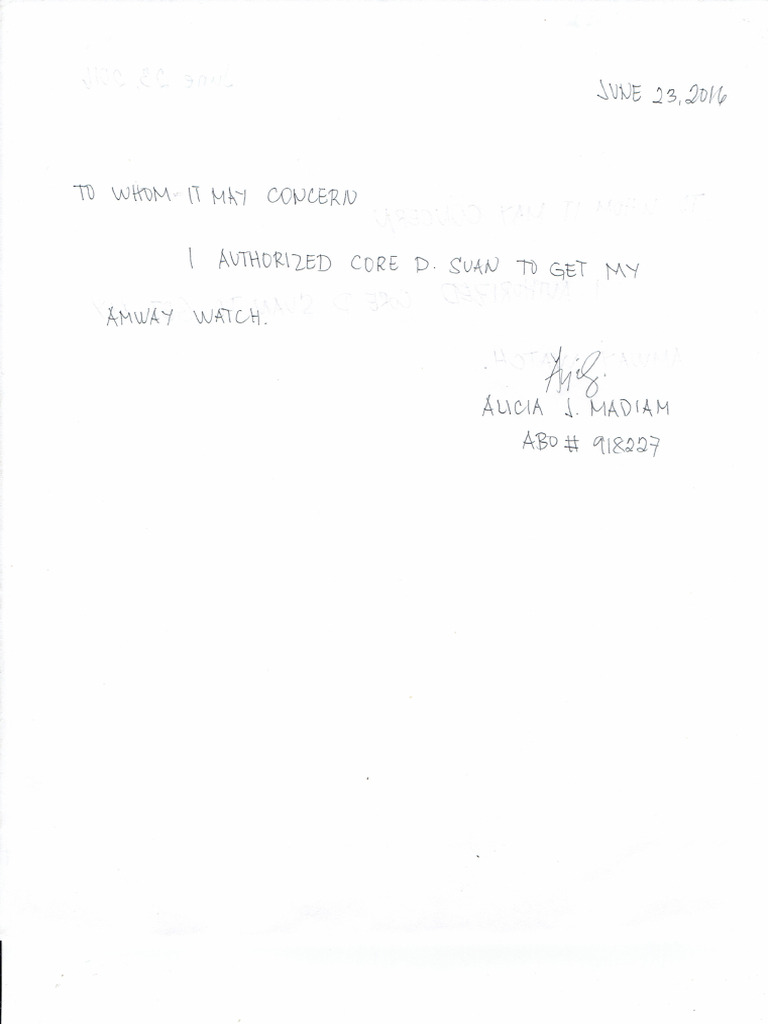 JUNE 23, 2016
TO WHOM IT MAY CONCERN
I AUTHORIZED CORE D. SUAN TO GET MY
AMWAY WATCH.
ALICIA J. MADIAM
ABO # 918227